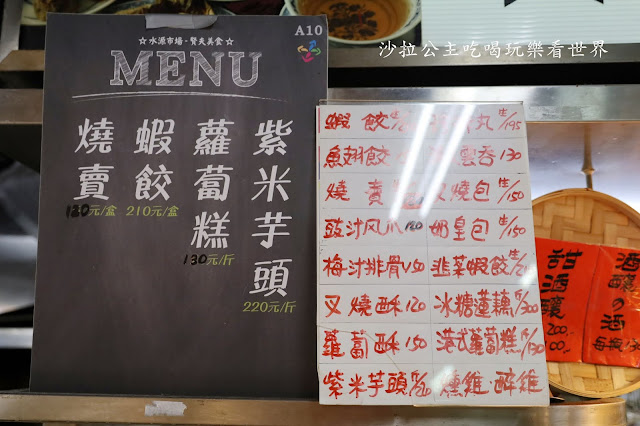 沙拉公主吃喝玩樂看世界
☆水源市場·賢夫美食☆
A10
MENU
紫米芋頭
220元/斤
蘿蔔糕
130元/斤
蝦餃
210元/盒
燒賣
180元/盒
蝦餃
丸 195
魚翅餃
雲吞 130
燒賣
叉燒包 150
豉汁风爪 120
奶皇包 150
梅汁排骨 150
韭菜蝦餃
叉燒酥 120
冰糖蓮藕 300
蘿蔔酥 150
港式蘿蔔糕 130
紫米芋頭
燻雞·醉雞
甜酒釀
酒釀の酒